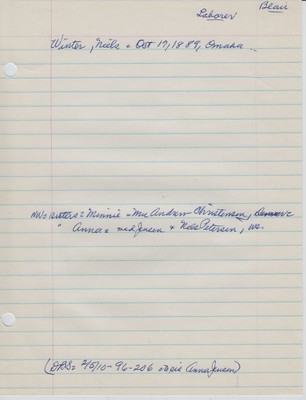 Blair
Laborer
Winter, Niels = Oct 17, 1889, Omaha
Sisters = Minnie = Mrs Andrew Christensen,
" Anna = md Jensen + Nels Petersen,
(DBS = 2/5/10-96-206 Anna Jensen)